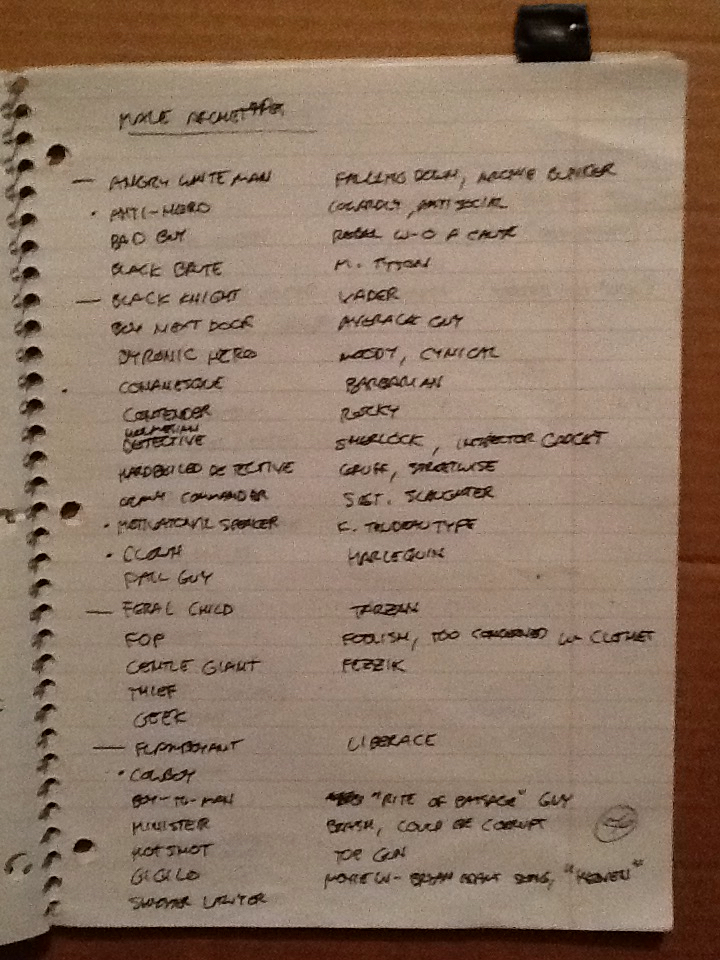 MALE ARCHETYPES
— ANGRY WHITE MAN FALLING DOWN, ARCHIE BUNKER
• ANTI-HERO COWARDLY, ANTISOCIAL
BAD GUY REBEL W-O A CAUSE
BLACK BRUTE M. TYSON
— BLACK KNIGHT VADER
BOY NEXT DOOR AVERAGE GUY
BYRONIC HERO MOODY, CYNICAL
• CONANESQUE BARBARIAN
CONTENDER ROCKY
HOLMESIAN
DETECTIVE SHERLOCK, INSPECTOR GADGET
HARDBOILED DETECTIVE GRUFF, STREETWISE
COMMANDER SGT. SLAUGHTER
• MOTIVATIONAL SPEAKER TYPE
• CLOWN HARLEQUIN
FALL GUY
— FERAL CHILD TARZAN
FOP FOOLISH, TOO CONCERNED W- CLOTHES
GENTLE GIANT FEZZIK
THIEF
GEEK
— FLAMBOYANT LIBERACE
• COWBOY
BOY-TO-MAN "RITE OF PASSAGE" GUY
MINISTER BRASH, COULD BE CORRUPT
HOTSHOT TOP GUN
GIGILO MOVIE W- BRYAN